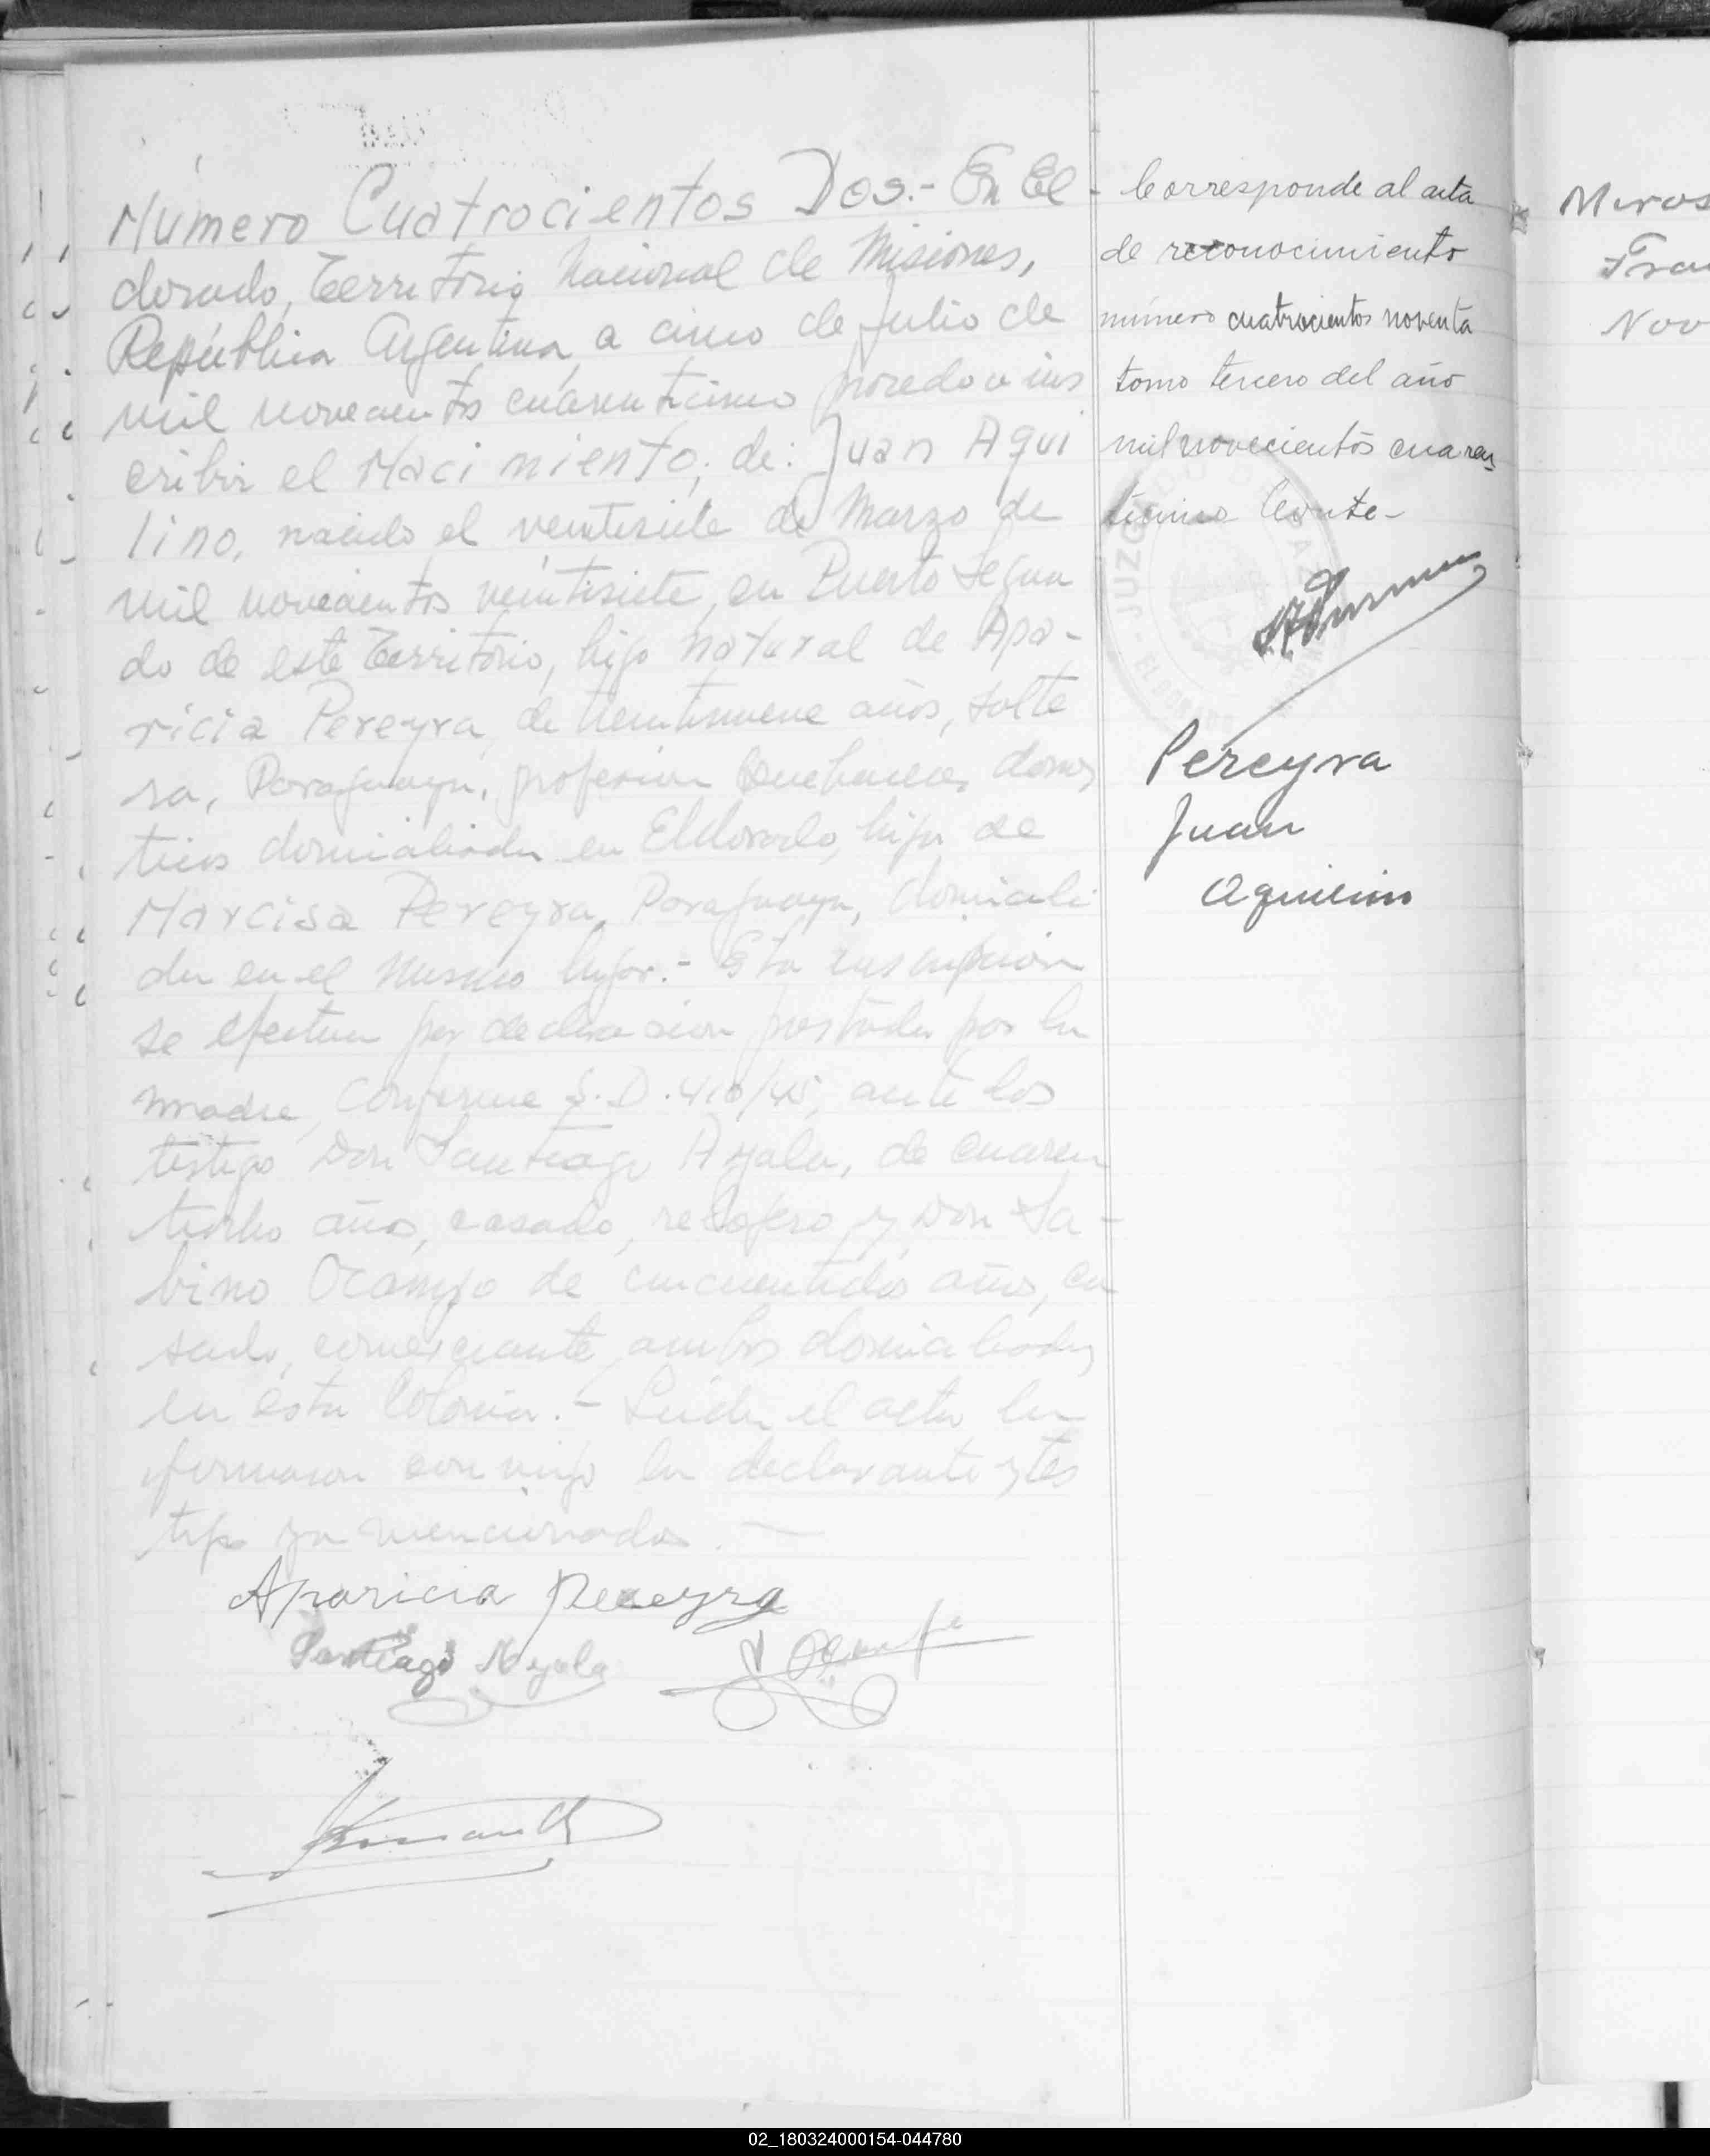 Número Cuatrocientos Dos.- En El-
dorado, Territorio Nacional de Misiones,
República Argentina, a cinco de Julio de
mil novecientos cuarenticinco procedo a ins
cribir el Nacimiento, de: Juan Aqui
lino, nacido el veintisiete de Marzo de
mil novecientos veintisiete, en Puerto Segun
do de este Territorio, hijo natural de Apa-
ricia Pereyra, de treintinueve años, solte
ra, Paraguaya, profesion Quehaceres domes
ticos domiciliada en Eldorado, hija de
Narcisa Pereyra, Paraguaya, domicili
da en el mismo lugar.- Esta inscripcion
se efectua por declaracion prestada por la
madre, Conforme S.D. 410/45, ante los
testigo Don Santiago Ayala, de cuaren
tiocho años, casado, relojero y Don Sa-
bino Ocampo de cincuentidos años, ca
sado, comerciante, ambos domiciliados
en esta Colonia.- Leida el acta la
firmaron conmigo la declarante y tes
tigo ya mencionados.
Aparicia Pereyra
Santiago Ayala
S Ocampo
Corresponde al acta
de reconocimiento
número cuatrocientos noventa
tomo tercero del año
mil novecientos cuaren
ticinco Conste-
JUZGADO DE PAZ
ELDORADO
Pereyra
Juan
Aquilino
Fra
Nov
02_180324000154-044780